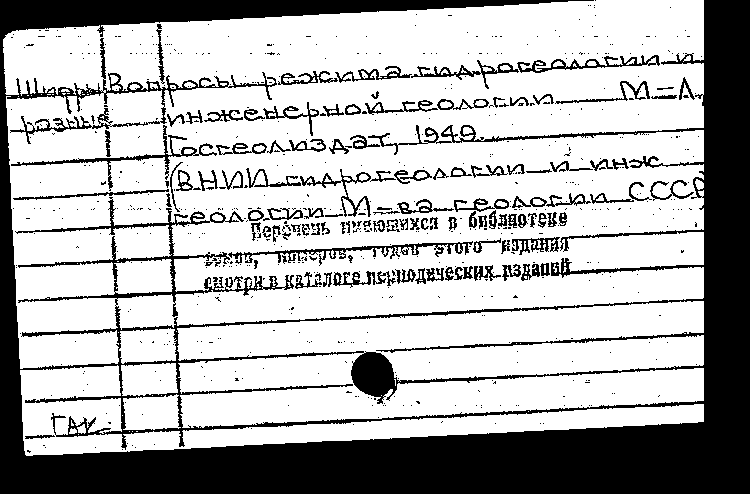 Шифры Вопросы режима гидрогеологии и
разные инженерной геологии М-Л,
Госгеолиздат, 1949.
(ВНИИ гидрогеологии и инж
геологии М-ва геологии СССР
Перечень имеющихся в библиотеке
томов, номеров, годов этого издания
смотри в каталоге периодических изданий